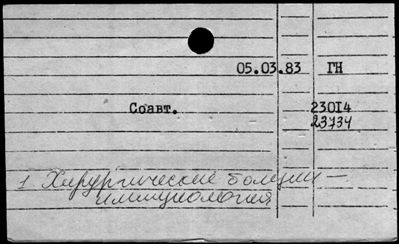 05.03.83 ГН
Соавт. 23014
23734
1 Хирургические болезни —
иммунология